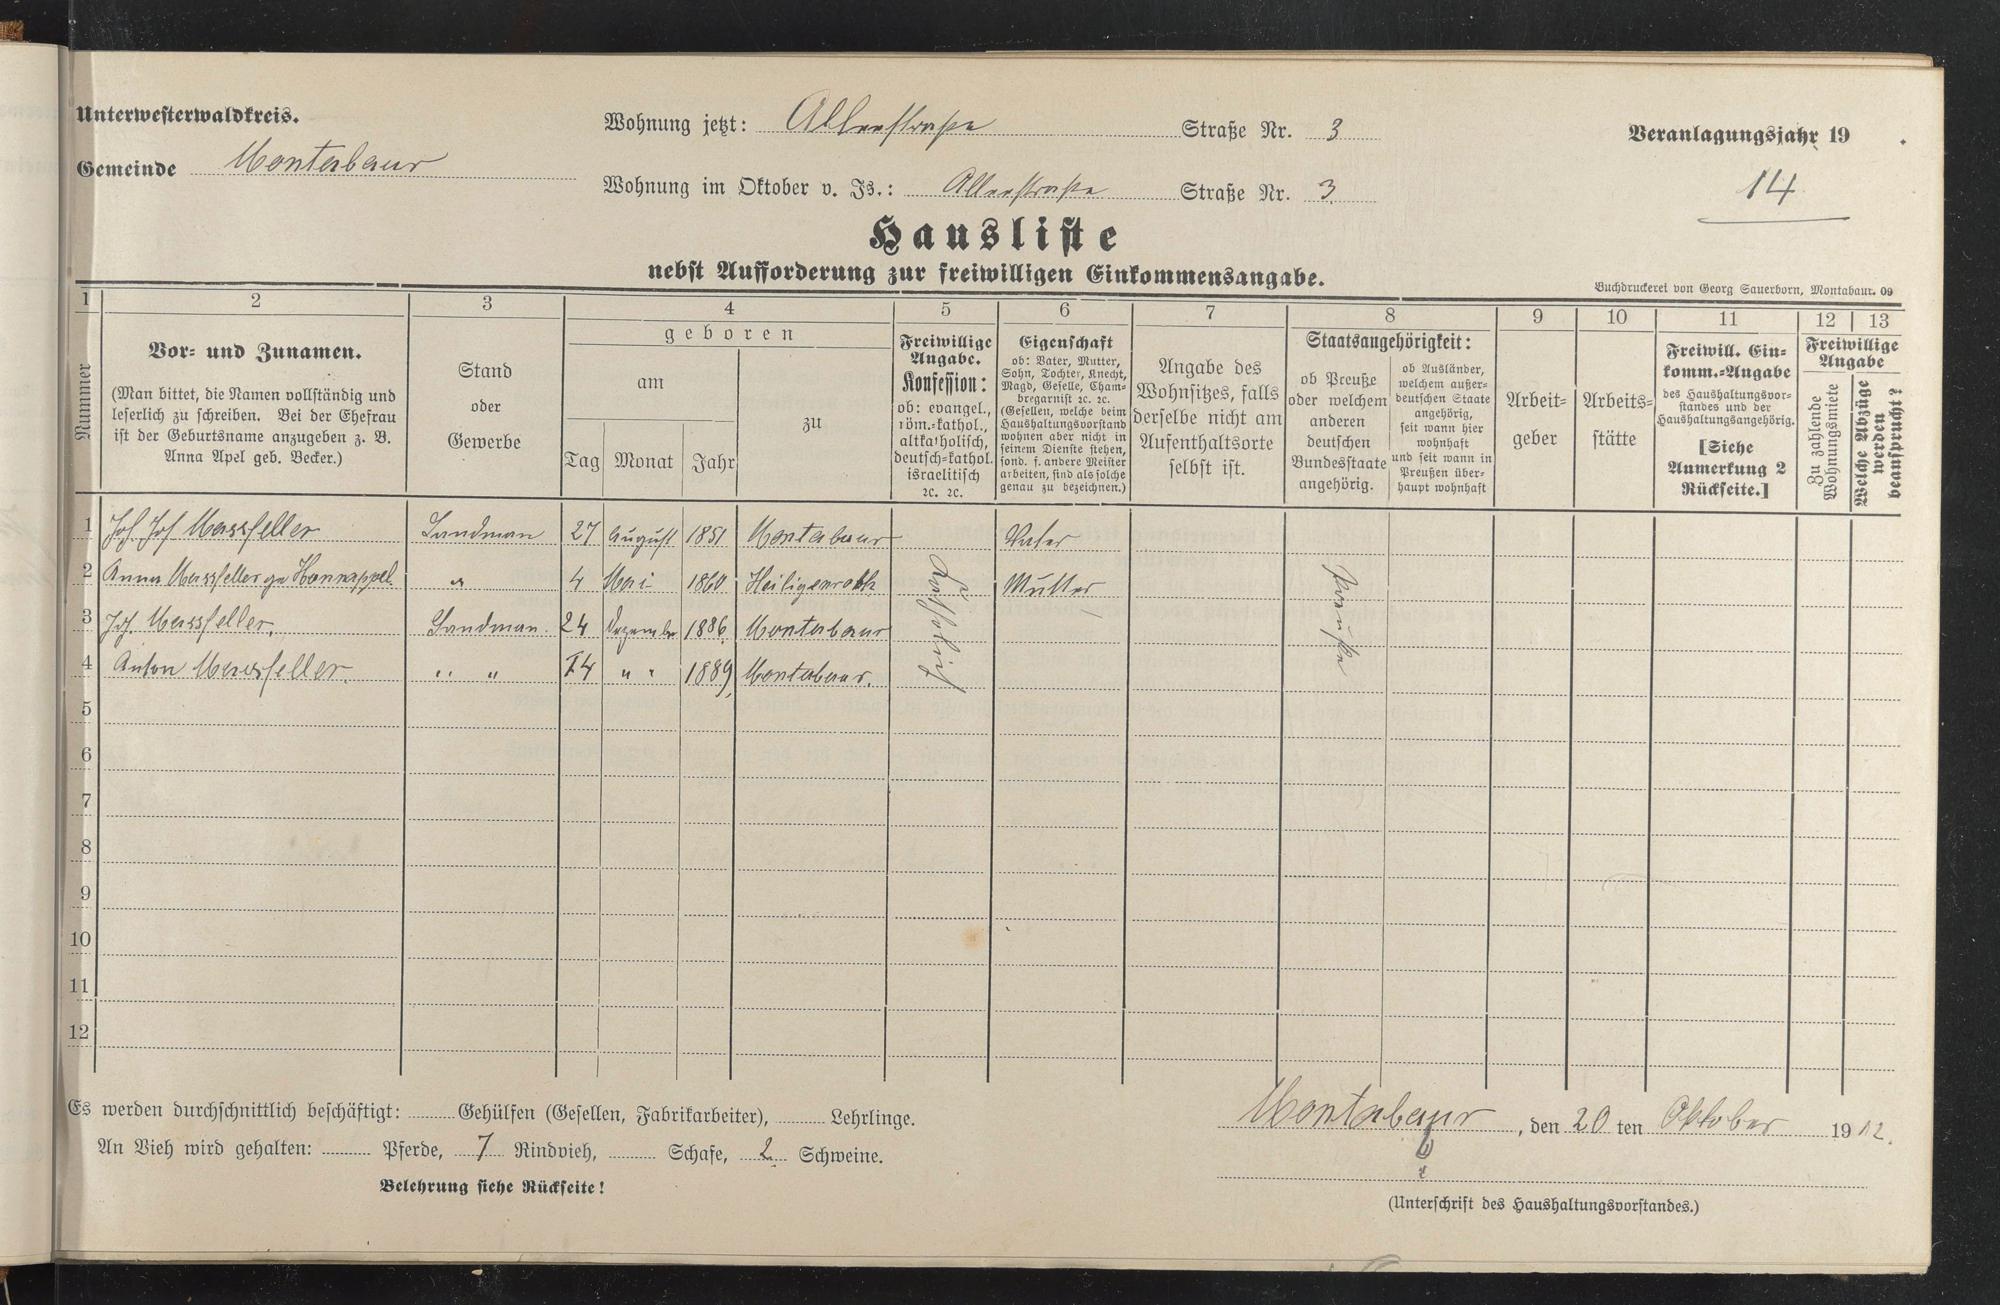 Unterwesterwaldkreis.
Gemeinde Montabaur
Wohnung jetzt: Allerstraße Straße Nr. 3
Wohnung im Oktober v. Js.: Allerstraße Straße Nr. 3
Veranlagungsjahr 19 .
14
Hausliste
nebst Aufforderung zur freiwilligen Einkommensangabe.
Buchdruckerei von Georg Sauerborn, Montabaur. 09
1 2 3 4 5 6 7 8 9 10 11 12 13
Nummer
Vor- und Zunamen.
(Man bittet, die Namen vollständig und
leserlich zu schreiben. Bei der Ehefrau
ist der Geburtsname anzugeben z. B.
Anna Apel geb. Becker.)
Stand
oder
Gewerbe
geboren
am
Tag Monat Jahr
zu
Freiwillige
Angabe.
Konfession:
ob: evangel.,
röm.-kathol.,
altkatholisch,
deutsch-kathol.
israelitisch
ꝛc. ꝛc.
Eigenschaft
ob: Vater, Mutter,
Sohn, Tochter, Knecht,
Magd, Geselle, Cham-
bregarnist ꝛc. ꝛc.
(Gesellen, welche beim
Haushaltungsvorstand
wohnen aber nicht in
seinem Dienste stehen,
sond. f. andere Meister
arbeiten, sind als solche
genau zu bezeichnen.)
Angabe des
Wohnsitzes, falls
derselbe nicht am
Aufenthaltsorte
selbst ist.
Staatsangehörigkeit:
ob Preuße
oder welchem
anderen
deutschen
Bundesstaate
angehörig.
ob Ausländer,
welchem außer-
deutschen Staate
angehörig,
seit wann hier
wohnhaft
und seit wann in
Preußen über-
haupt wohnhaft
Arbeit-
geber
Arbeits-
stätte
Freiwill. Ein-
komm.-Angabe
des Haushaltungsvor-
standes und der
Haushaltungsangehörig.
[Siehe
Anmerkung 2
Rückseite.]
Freiwillige
Angabe
Zu zahlende
Wohnungsmiete
Welche Abzüge
werden
beansprucht?
1 Joh. Jos Massfeller Landman 27 August 1851 Montabaur Vater
2 Anna Massfeller ge Hannappel " 4 Mai 1860 Heiligenroth Mutter
3 Joh. Massfeller. Landman 24 Dezember 1886 Montabaur
4 Anton Massfeller. " " 14 " " 1889 Montabaur.
Katholisch
Preuße
5
6
7
8
9
10
11
12
Es werden durchschnittlich beschäftigt: Gehülfen (Gesellen, Fabrikarbeiter), Lehrlinge.
An Vieh wird gehalten: Pferde, 7 Rindvieh, Schafe, 2 Schweine.
Belehrung siehe Rückseite!
Montabaur, den 20 ten Oktober 1912.
(Unterschrift des Haushaltungsvorstandes.)